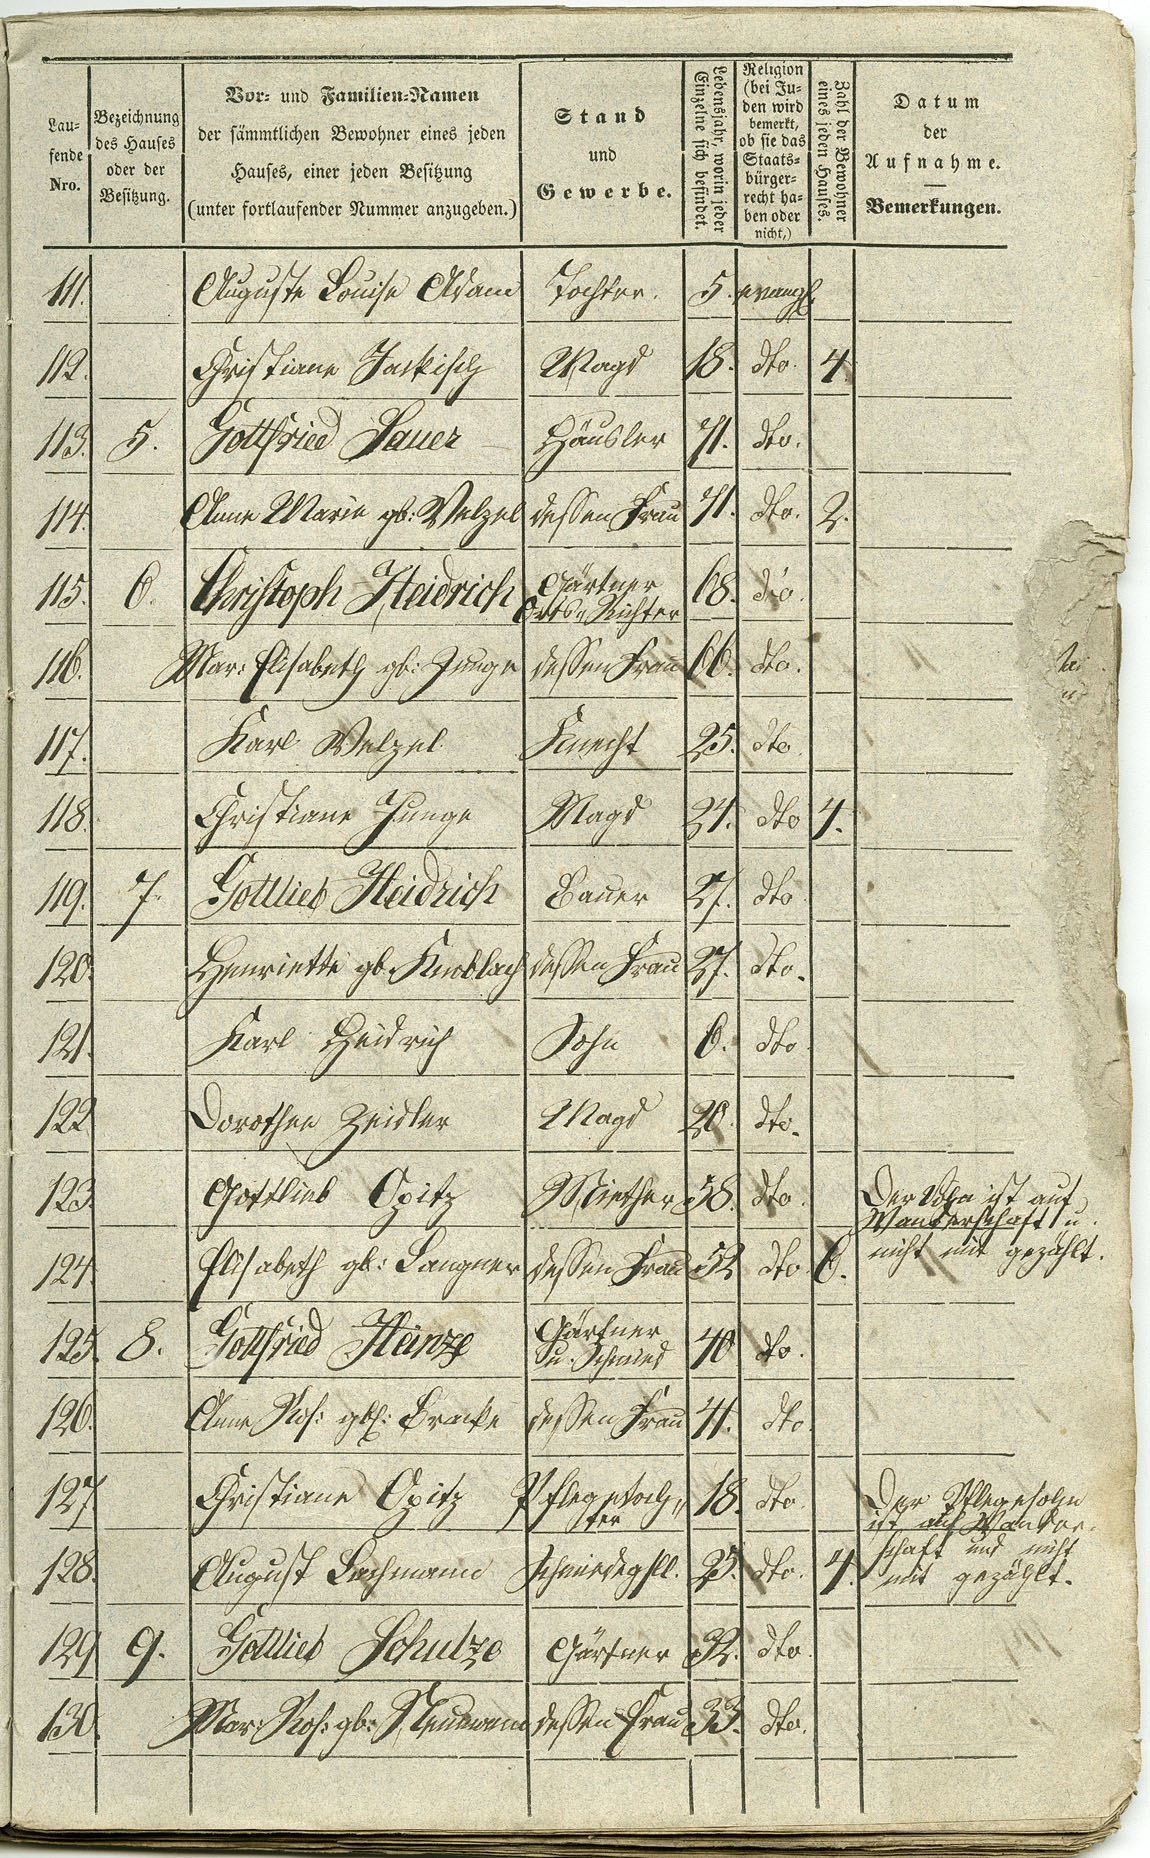 Lau-
fende
Nro.
Bezeichnung
des Hauses
oder der
Besitzung.
Vor- und Familien-Namen
der sämmtlichen Bewohner eines jeden
Hauses, einer jeden Besitzung
(unter fortlaufender Nummer anzugeben.)
Stand
und
Gewerbe.
Lebensjahr, worin jeder
Einzelne sich befindet.
Religion
(bei Ju-
den wird
bemerkt,
ob sie das
Staats-
bürger-
recht ha-
ben oder
nicht,)
Zahl der Bewohner
eines jeden Hauses.
Datum
der
Aufnahme.
Bemerkungen.
111. Auguste Louise Adam Tochter. 5. evangl.
112. Christiane Jackisch Magd 18. dto. 4.
113. 5. Gottfried Sauer Häusler 71. dto.
114. Anne Marie gb: Welzel dessen Frau 71. dto. 2.
115. 6. Christoph Heidrich Gärtner
Orts-Richter 68. dto.
116. Mar: Elisabeth gb: Junge dessen Frau 66. dto.
117. Karl Welzel Knecht 25. dto
118. Christiane Junge Magd 24. dto 4.
119. 7. Gottlieb Heidrich Bauer 27. dto
120. Henriette gb. Knoblach dessen Frau 27. dto.
121. Karl Heidrich Sohn 6. dto
122 Dorothea Zeidler Magd 20. dto.
123. Gottlieb Opitz Miether 58. dto. Der Sohn ist auf
Wanderschaft u.
124 Elisabeth gb: Langner dessen Frau 52 dto 6. nicht mit gezählt.
125. 8. Gottfried Heinze Gärtner
u. Schmied 40 dto.
126. Anne Ros: gb: dessen Frau 41. dto.
127 Christiane Opitz Pflegetoch-
ter 18. dto. Der Pflegesohn
ist auf Wander-
128. August Lachmann Schmiedegsll. 25. dto. 4. schaft und nicht
mit gezählt.
129 9. Gottlieb Schulze Gärtner 32. dto.
130. Mar: Ros: gb: Neumann dessen Frau 33. dto.